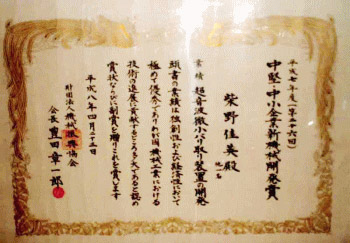 平成七年度(第二十六回)
中堅・中小企業新機械開発賞
柴野佳英殿
他一名
業績 超音波微小バリ取り装置の開発
頭書の業績は独創性および経済性において
極めて優秀でありわが国機械工業における
技術の進展に貢献するところ多大であると認め
賞状ならびに副賞を贈りこれを賞します
平成八年四月二十三日
財団法人機械振興協会
会長豊田章一郎